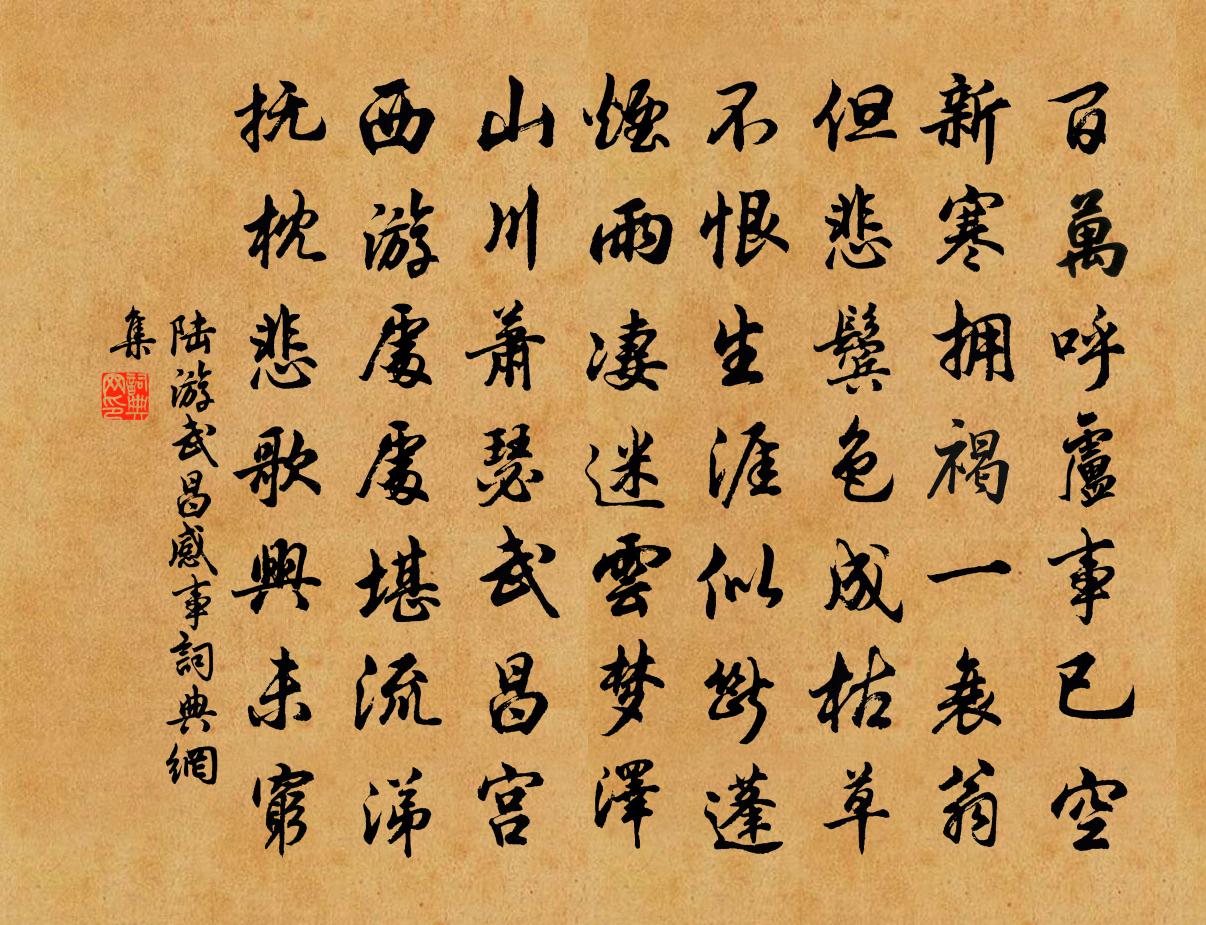 百萬呼盧事已空
新寒拥褐一衰翁
但悲鬓色成枯草
不恨生涯似斷蓬
煙雨凄迷雲梦澤
山川萧瑟武昌宫
西游處處堪流涕
抚枕悲歌興未窮
陆游武昌感事詞典網
集
詞典
网印